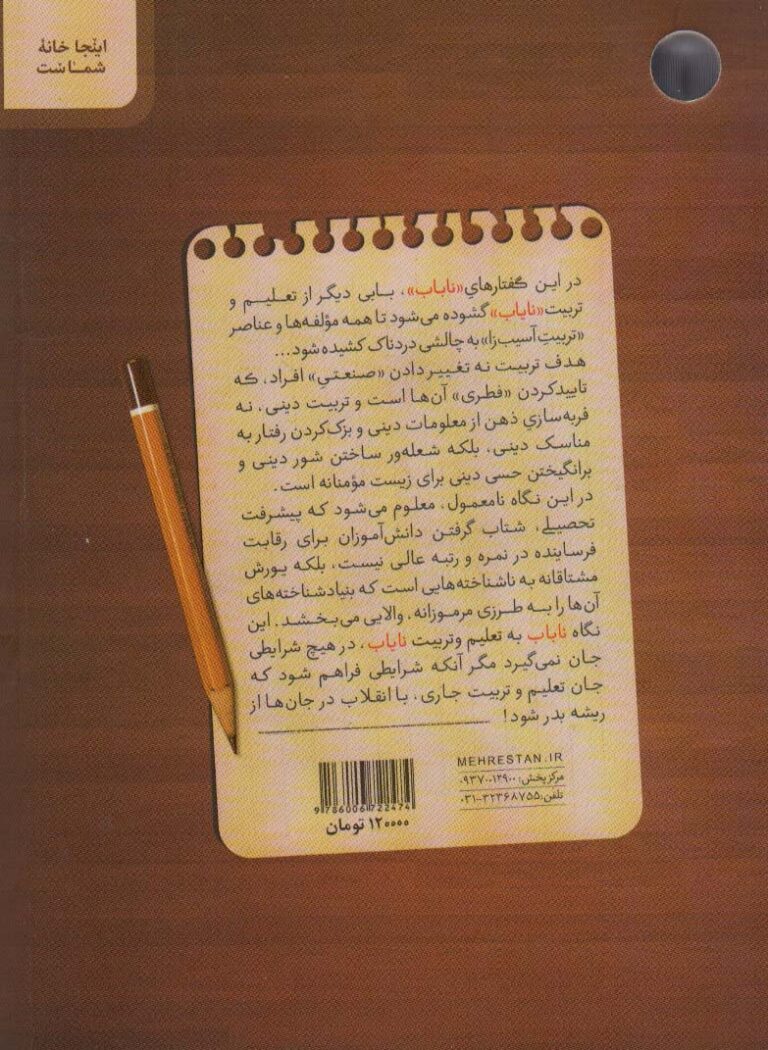 اینجا خانهٔ
شماست
در این گفتارهای «ناباب»، بابی دیگر از تعلیم و
تربیت «نایاب» گشوده می‌شود تا همه مؤلفه‌ها و عناصر
«تربیتِ آسیب‌زا» به چالشی دردناک کشیده شود...
هدف تربیت نه تغییر دادن «صنعتیِ» افراد، که
تاییدکردن «فطری» آن‌ها است و تربیت دینی، نه
فربه‌سازیِ ذهن از معلومات دینی و بزک‌کردن رفتار به
مناسک دینی، بلکه شعله‌ور ساختن شور دینی و
برانگیختن حسی دینی برای زیست مؤمنانه است.
در این نگاه نامعمول، معلوم می‌شود که پیشرفت
تحصیلی، شتاب گرفتن دانش‌آموزان برای رقابت
فرساینده در نمره و رتبه عالی نیست، بلکه یورش
مشتاقانه به ناشناخته‌هایی است که بنیاد شناخته‌های
آن‌ها را به طرزی مرموزانه، والایی می‌بخشد. این
نگاه ناباب به تعلیم وتربیت نایاب، در هیچ شرایطی
جان نمی‌گیرد مگر آنکه شرایطی فراهم شود که
جان تعلیم و تربیت جاری، با انقلاب در جان‌ها از
ریشه بدر شود!
MEHRESTAN.IR
مرکزپخش: ۰۹۳۷۰۰۱۲۹۰۰
تلفن: ۰۳۱-۳۲۳۶۸۷۵۵
9786006722474
۱۲۰۰۰۰ تومان